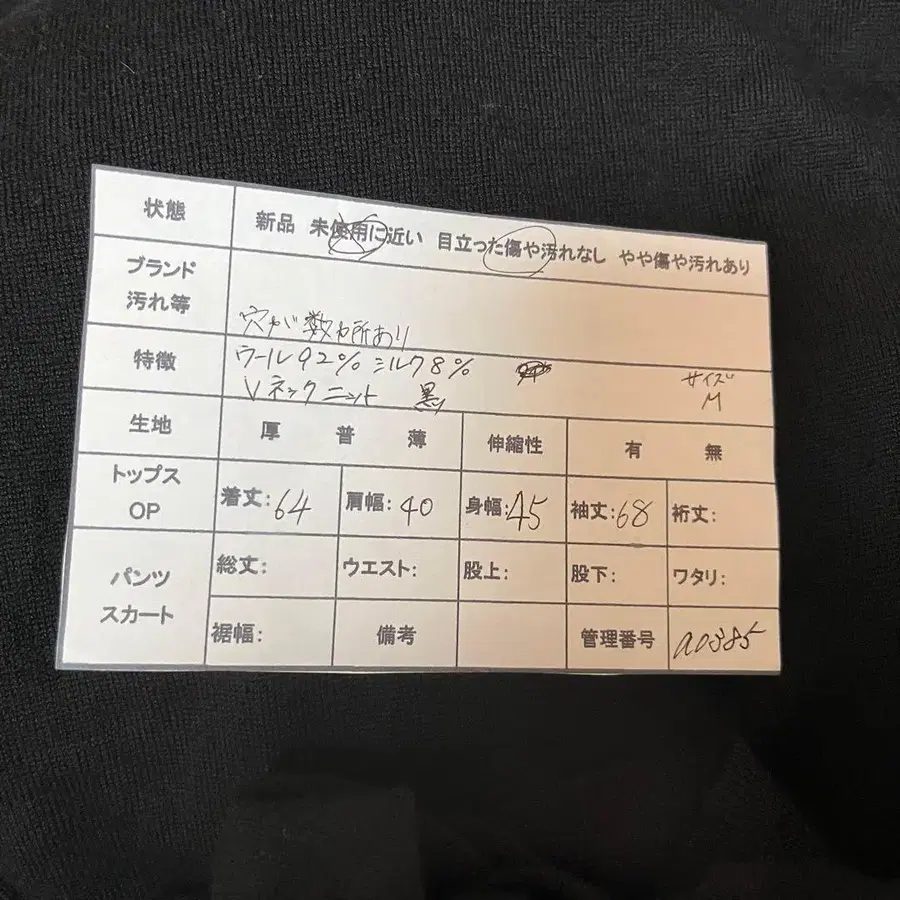 状態 新品 未使用に近い 目立った傷や汚れなし やや傷や汚れあり
ブランド
汚れ等 穴が数カ所あり
特徴 ウール92% シルク8% サイズ
Vネックニット 黒 M
生地 厚 普 薄 伸縮性 有 無
トップス
OP 着丈:64 肩幅:40 身幅:45 袖丈:68 裄丈:
パンツ
スカート
総丈: ウエスト: 股上: 股下: ワタリ:
裾幅: 備考 管理番号 a0385